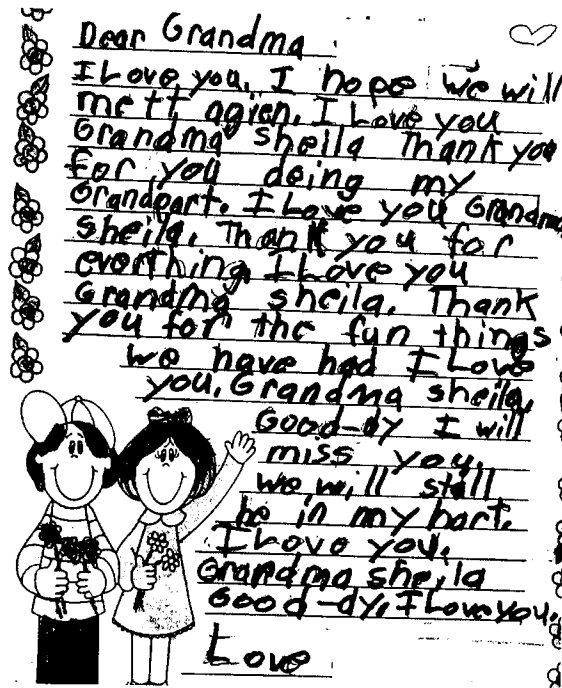 Dear Grandma
I Love you. I hope we will
mett agien. I Love you
Grandma sheila Thank you
for you deing my
Grandpart. I Love you Grandma
sheila. Thank you for
everthing. I Love you
Grandma sheila. Thank
you for the fun things
we have had I Love
you. Grandma sheila.
Good-dy I will
miss you.
we will stell
be in my hart.
I Love you.
Grandma sheila
Good-dy. I Love you.
Love